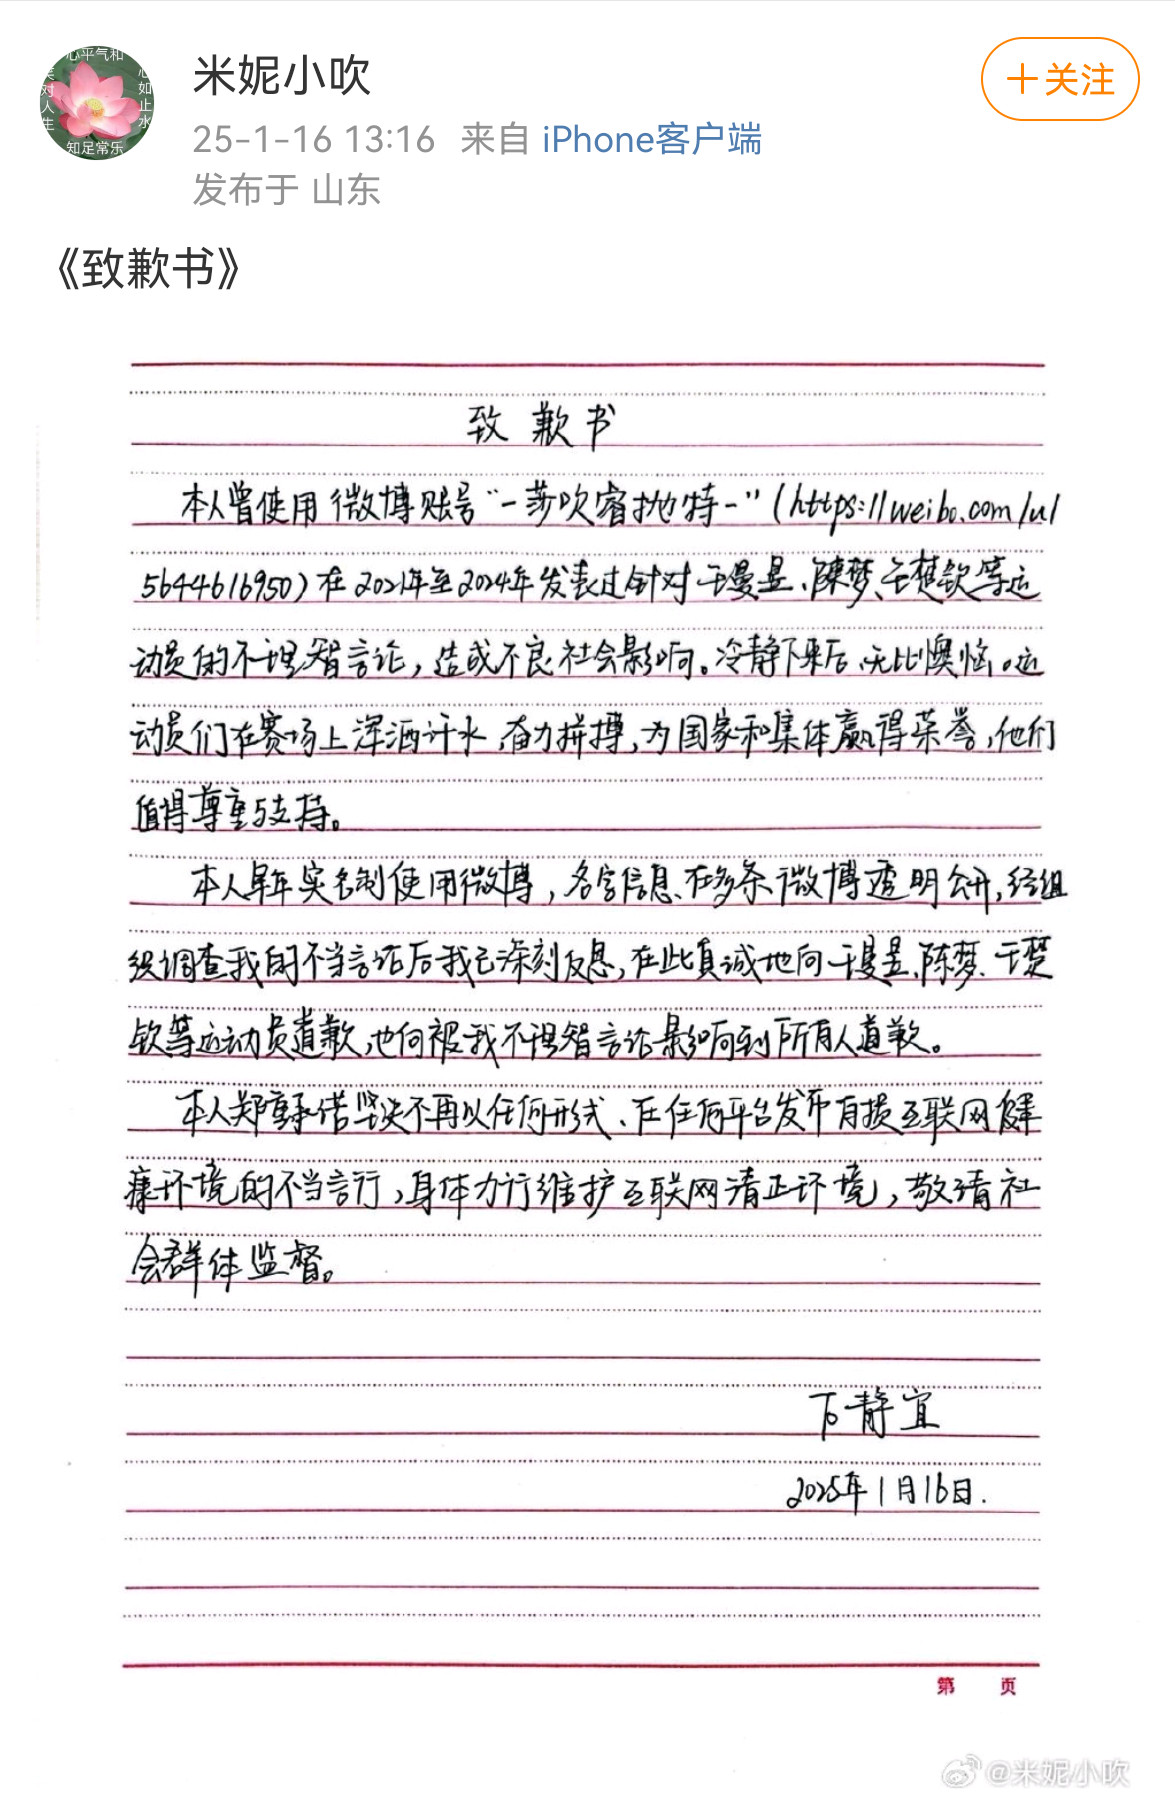 心平气和
笑对人生
心如止水
知足常乐
米妮小吹
+关注
25-1-16 13:16 来自 iPhone客户端
发布于 山东
《致歉书》
致歉书
本人曾使用微博账号“-莎吹睿抛特-”(https://weibo.com/u/
5644616950)在2021年至2024年发表过针对王曼昱、陳梦、王楚钦等运
动员的不理智言论,造成不良社会影响。冷静下来后,无比懊恼。运
动员们在赛场上浑洒汗水,奋力拼搏,为国家和集体赢得荣誉,他们
值得尊重与支持。
本人早年实名制使用微博,名字信息在多条微博透明公开,经组
织调查我的不当言论后我已深刻反思,在此真诚地向王曼昱、陈梦、王楚
钦等运动员道歉,也向被我不理智言论影响到所有人道歉。
本人郑重承诺坚决不再以任何形式、在任何平台发布有损互联网健
康环境的不当言行,身体力行维护互联网清正环境,敬请社
会群体监督。
卞静宜
2025年1月16日.
第 页
@米妮小吹